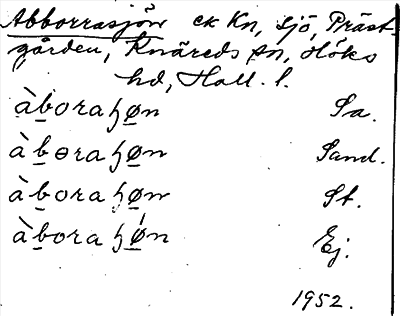 Abborrasjön ek Kn, sjö, Präst-
gården, Knäreds sn, Höks
hd, Hall. l.
àboraɧøn Sa.
àbɵraɧøn Sand.
àboraɧøn St.
àboraɧǿn Ej.
1952.